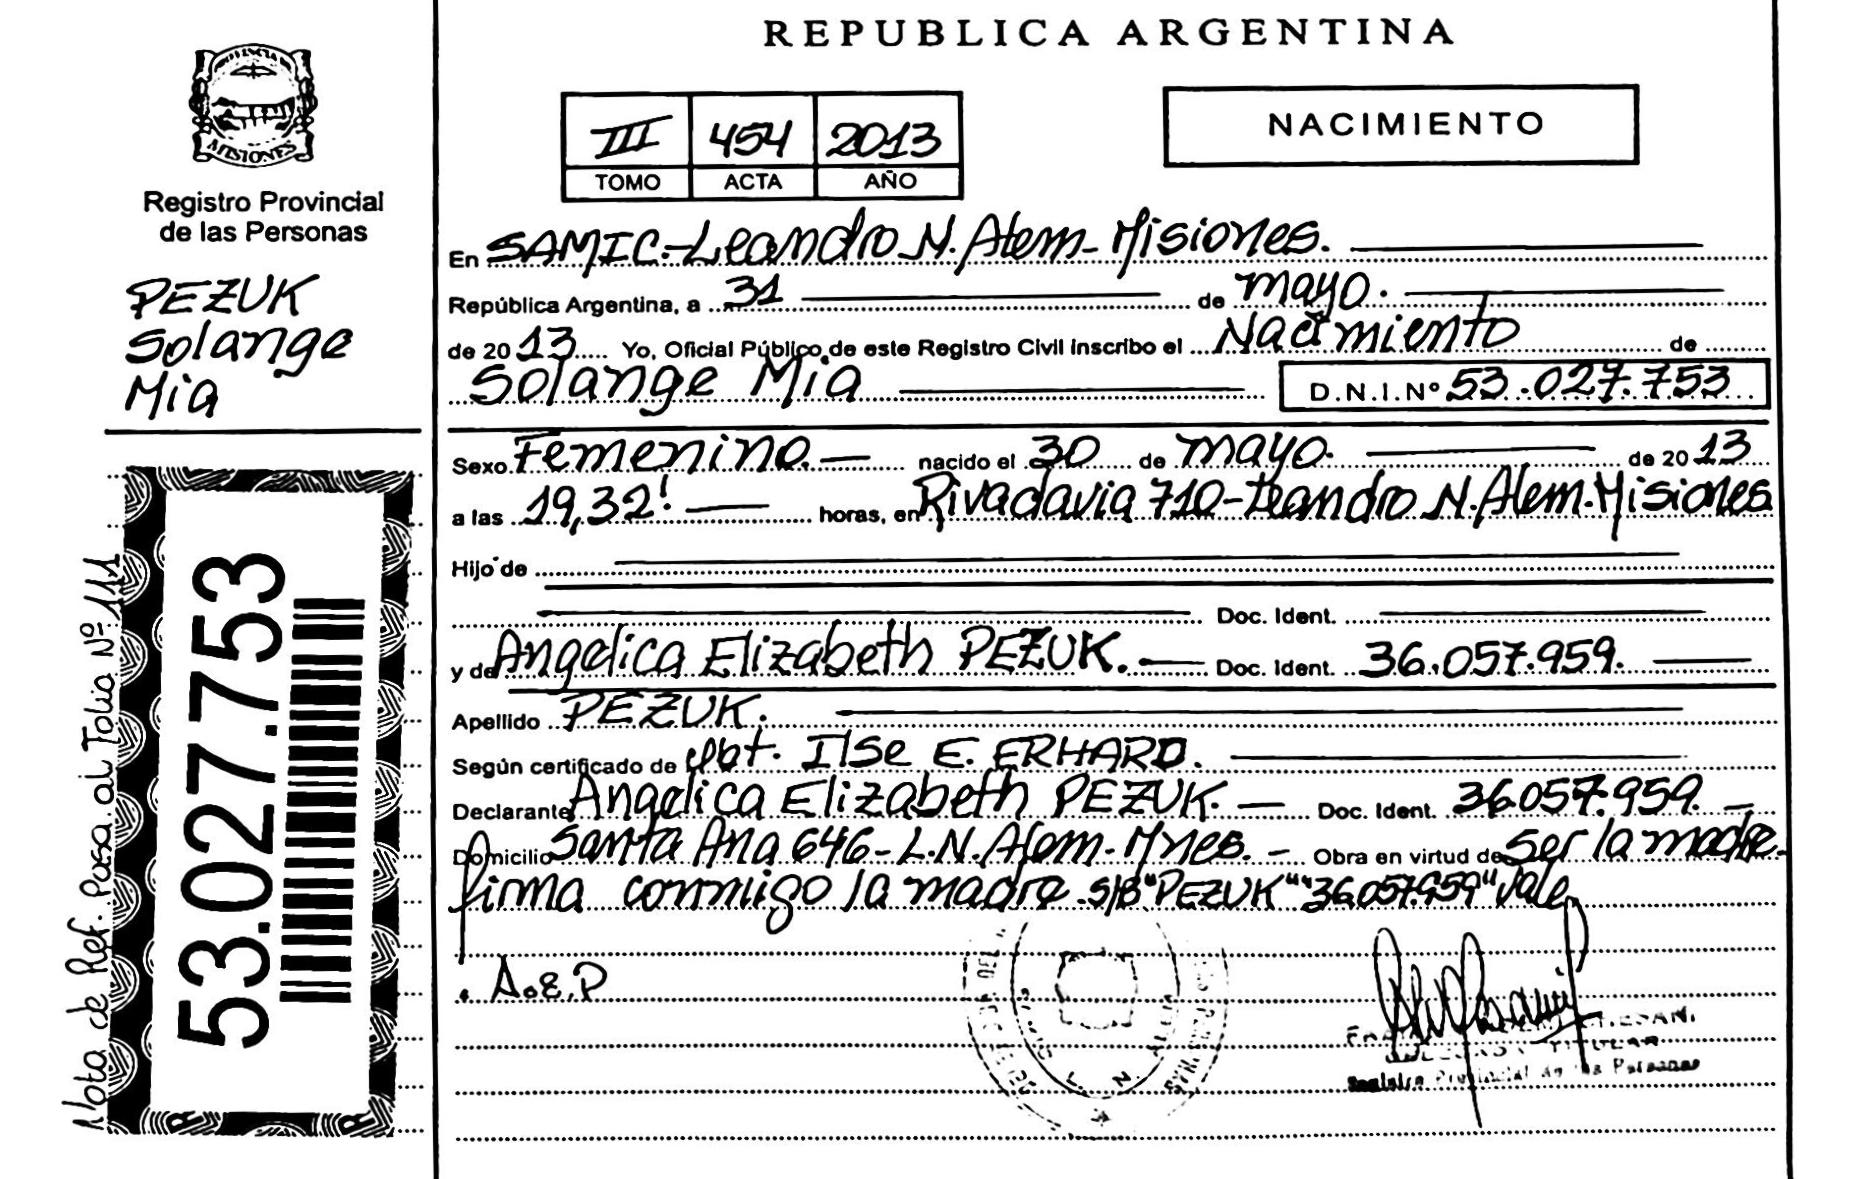 PROVINCIA DE
MISIONES
Registro Provincial
de las Personas
PEZUK
Solange
Mia
53.027.753
Nota de Ref. Pasa al Folio Nº 111
REPUBLICA ARGENTINA
III 454 2013
TOMO ACTA AÑO
NACIMIENTO
En SAMIC-Leandro N. Alem-Misiones.
República Argentina, a 31 de mayo.
de 2013 Yo, Oficial Público de este Registro Civil inscribo el Nacimiento de
Solange Mia D.N.I.Nº 53.027.753
Sexo Femenino. nacido el 30 de mayo. de 2013
a las 19,32! horas, en Rivadavia 710-Leandro N. Alem-Misiones
Hijo de
Doc. Ident.
y de Angelica Elizabeth PEZUK. Doc. Ident. 36.057.959.
Apellido PEZUK.
Según certificado de Obt. Ilse E. ERHARD.
Declarante Angelica Elizabeth PEZUK. Doc. Ident. 36057.959.
Domicilio Santa Ana 646-L.N. Alem-Mnes. Obra en virtud de ser la madre.
firma conmigo la madre. S/B "PEZUK" "36.057.959" Vale
A.E.P
TITULAR
Registro Provincial de las Personas